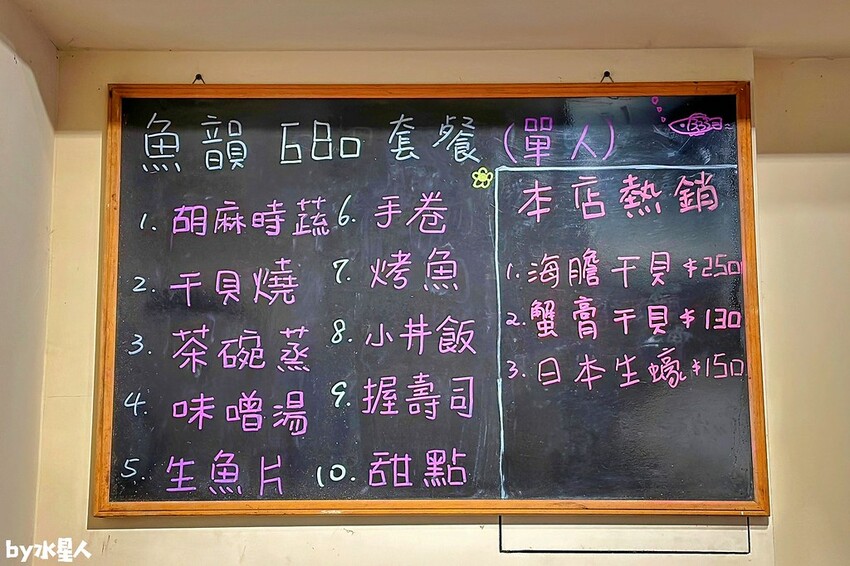 魚韻 680 套餐 (單人)
1. 胡麻時蔬
2. 干貝燒
3. 茶碗蒸
4. 味噌湯
5. 生魚片
6. 手卷
7. 烤魚
8. 小丼飯
9. 握壽司
10. 甜點
本店熱銷
1. 海膽干貝 $250
2. 蟹膏干貝 $130
3. 日本生蠔 $150
by水星人